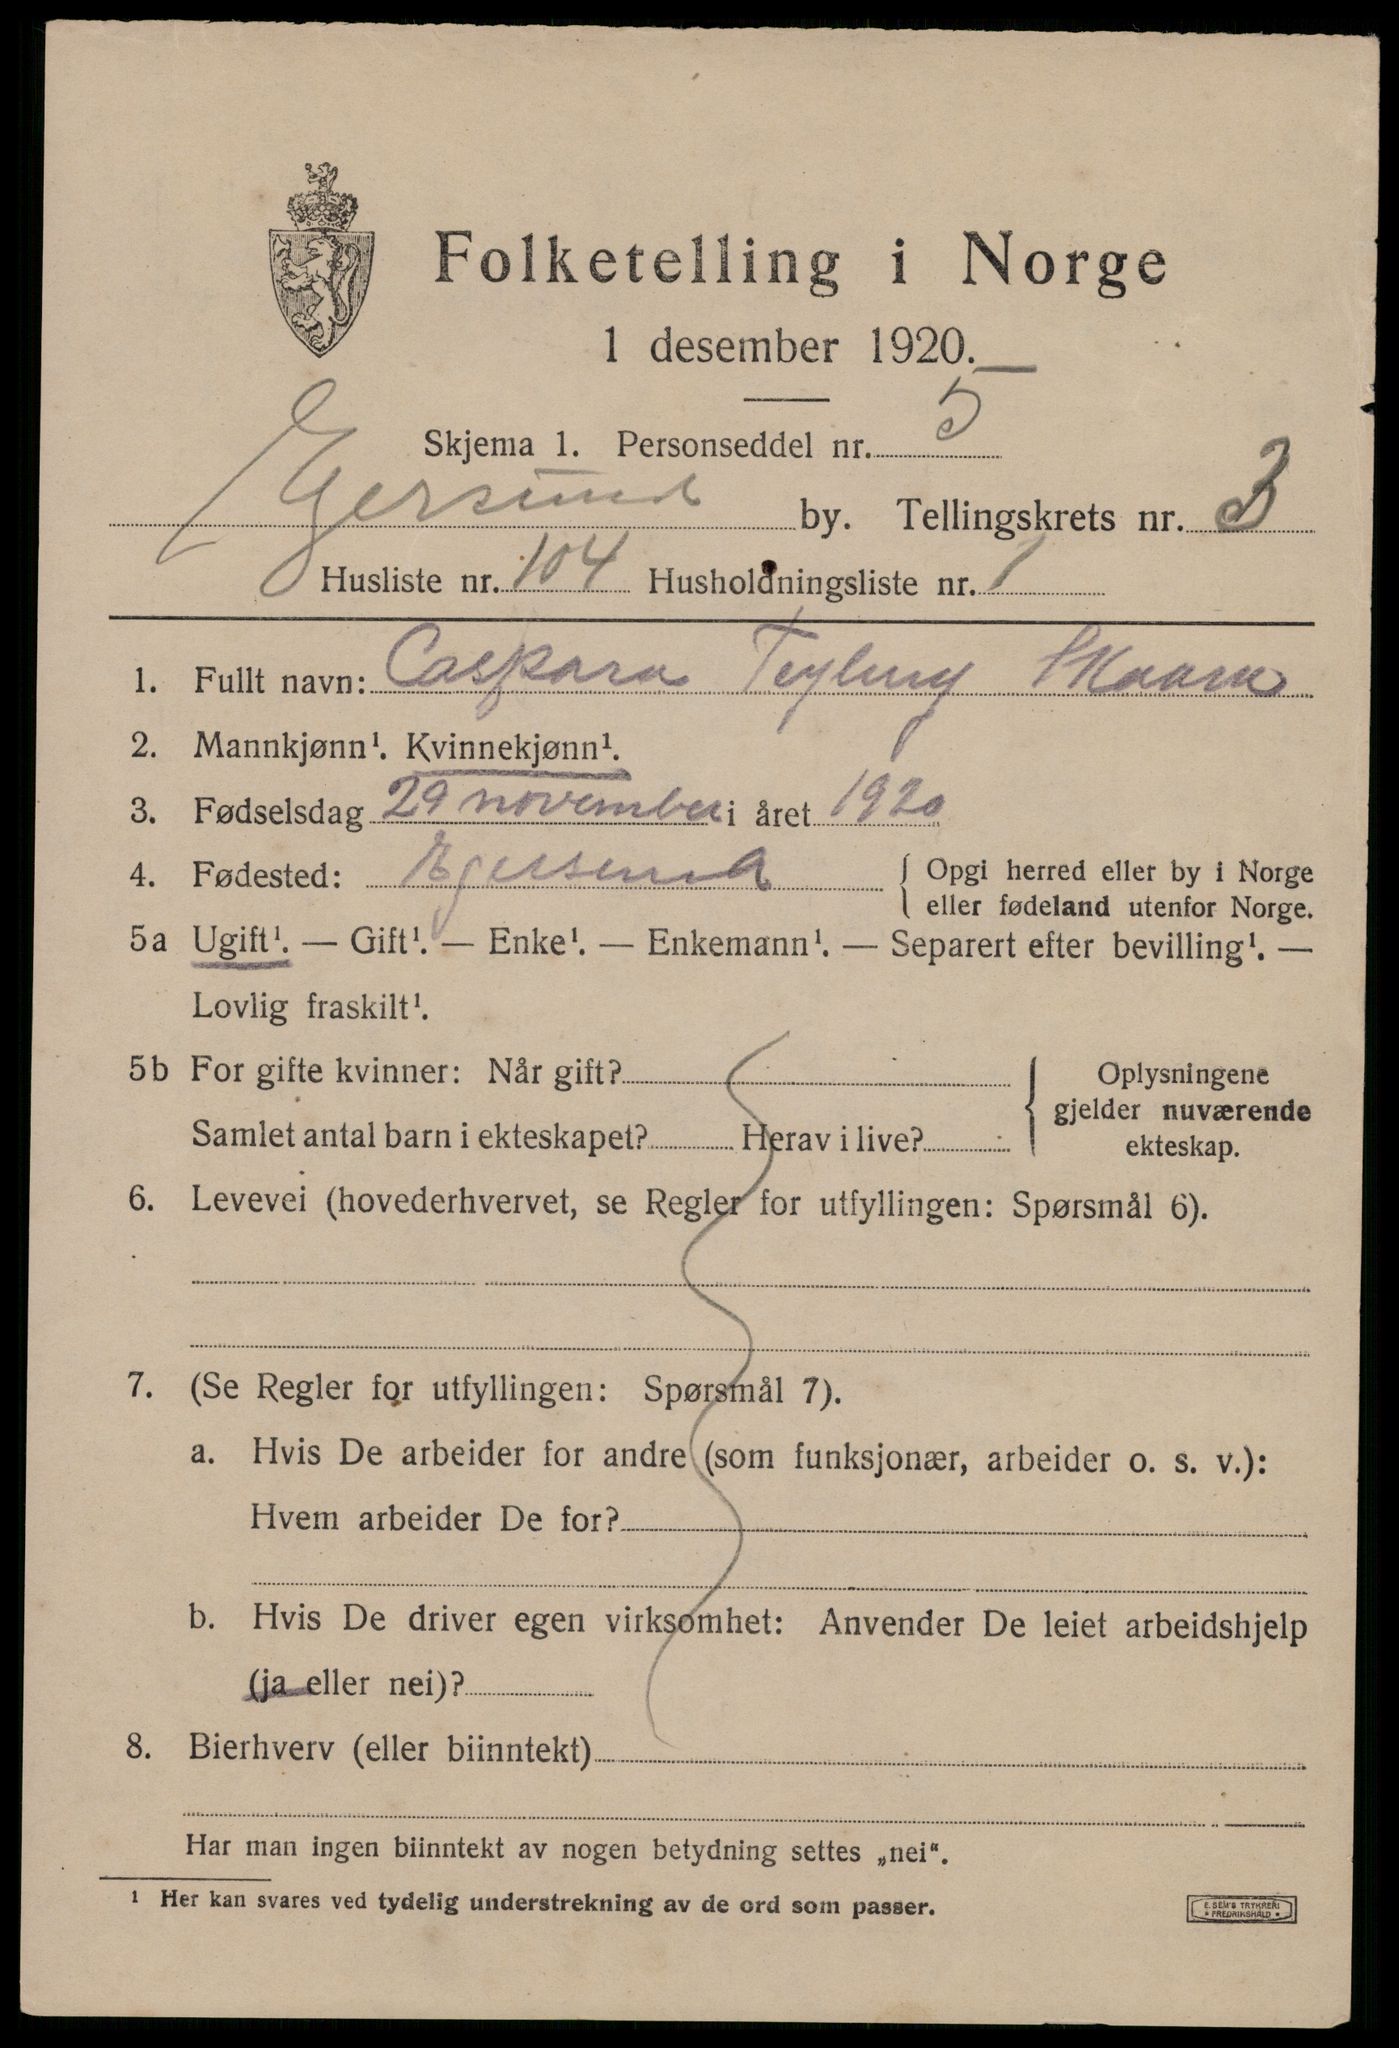 Folketelling i Norge
1 desember 1920.
Skjema 1. Personseddel nr. 5
Egersund by. Tellingskrets nr. 3
Husliste nr. 104 Husholdningsliste nr. 1
1. Fullt navn: Caspara
2. Mannkjønn¹. Kvinnekjønn¹.
3. Fødselsdag 29 november i året 1920
4. Fødested: Egersund { Opgi herred eller by i Norge
eller fødeland utenfor Norge.
5a Ugift¹. — Gift¹. — Enke¹. — Enkemann¹. — Separert efter bevilling¹. —
Lovlig fraskilt¹.
5b For gifte kvinner: Når gift?
Samlet antal barn i ekteskapet? Herav i live?
{ Oplysningene
gjelder nuværende
ekteskap.
6. Levevei (hovederhvervet, se Regler for utfyllingen: Spørsmål 6).
7. (Se Regler for utfyllingen: Spørsmål 7).
a. Hvis De arbeider for andre (som funksjonær, arbeider o. s. v.):
Hvem arbeider De for?
b. Hvis De driver egen virksomhet: Anvender De leiet arbeidshjelp
(ja eller nei)?
8. Bierhverv (eller biinntekt)
Har man ingen biinntekt av nogen betydning settes „nei“.
¹ Her kan svares ved tydelig understrekning av de ord som passer.
E. SEM'S TRYKKERI
* FREDRIKSHALD *